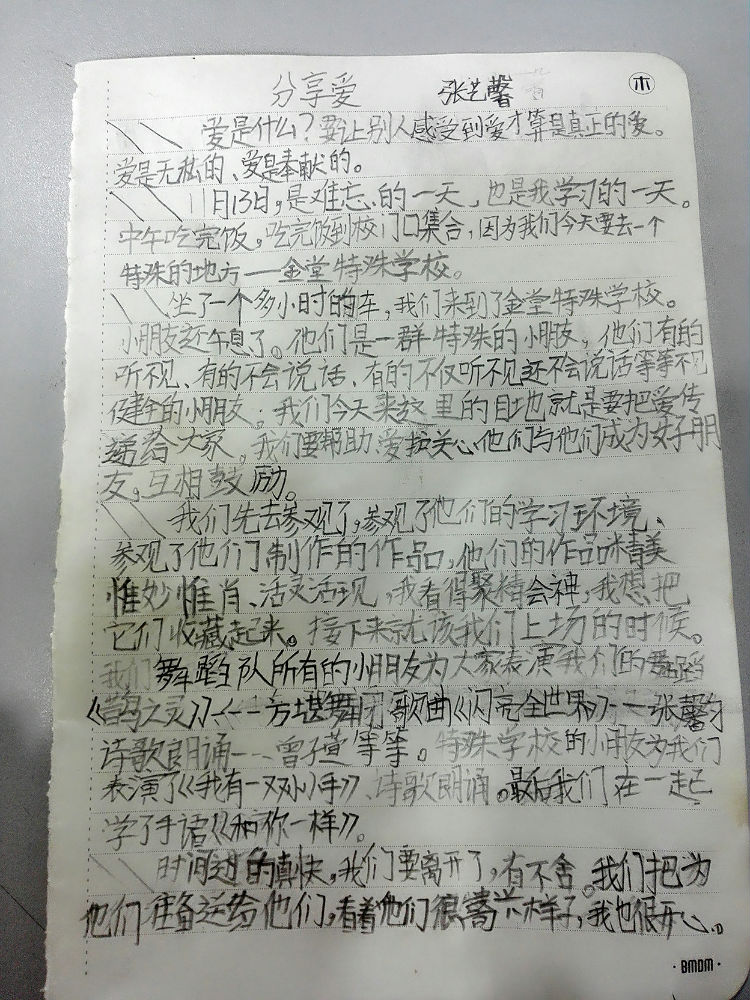 分享爱 张艺馨 木
爱是什么？要让别人感受到爱才算是真正的爱。
爱是无私的、爱是奉献的。
11月13日，是难忘的一天，也是我学习的一天。
中午吃完饭，吃完饭到校门口集合，因为我们今天要去一个
特殊的地方——金堂特殊学校。
坐了一个多小时的车，我们来到了金堂特殊学校。
小朋友还午息了。他们是一群特殊的小朋友，他们有的
听不见、有的不会说话、有的不仅听不见还不会说话等等不
健全的小朋友；我们今天来这里的目地就是要把爱传
递给大家。我们要帮助、爱护关心他们与他们成为好朋
友，互相鼓励。
我们先去参观了，参观了他们的学习环境、
参观了他们制作的作品，他们的作品精美
惟妙惟肖、活灵活现，我看得聚精会神，我想把
它们收藏起来。接下来就该我们上场的时候。
我们舞蹈队所有的小朋友为大家表演我们的舞蹈
之灵》歌曲《闪亮全世界》——张馨
诗歌朗诵——曾子 等等。特殊学校的小朋友为我们
表演了《我有一双小手》、诗歌朗诵。最后我们在一起
学了手语《和你一样》。
时间过的真快，我们要离开了，有不舍。我们把为
他们准备送给他们，看着他们很 样子，我也很开心。
BMDM